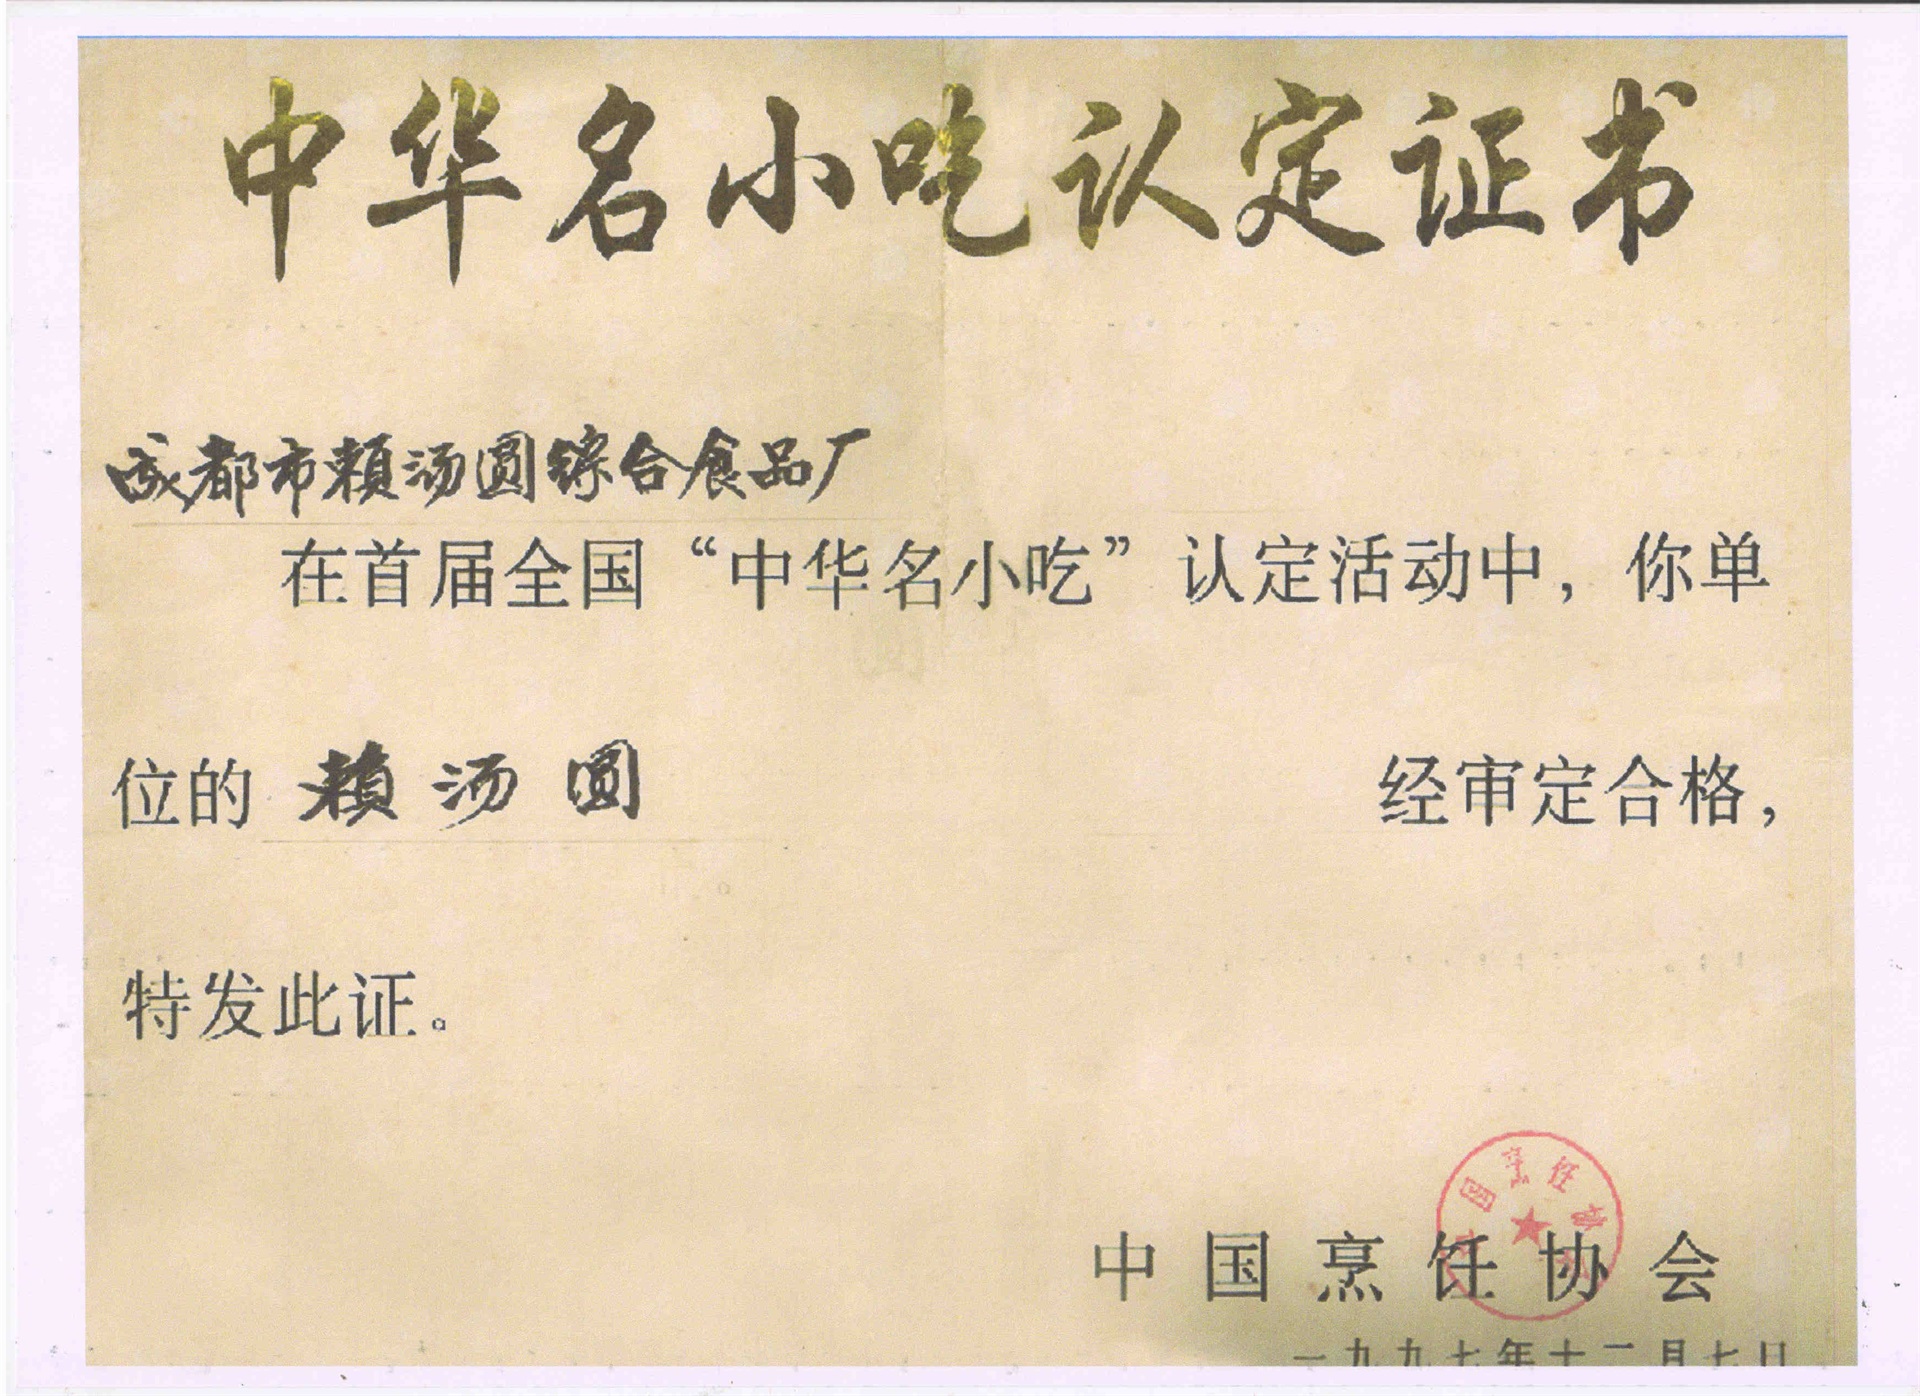 中华名小吃认定证书
成都市赖汤圆综合食品厂
在首届全国“中华名小吃”认定活动中，你单
位的 赖汤圆 经审定合格，
特发此证。
中国烹饪协会
一九九七年十二月七日